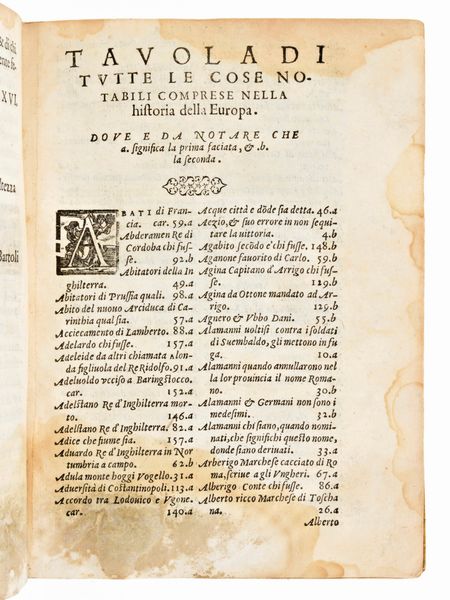 & di chi
XVI.
Bartoli
TAVOLA DI
TVTTE LE COSE NO-
TABILI COMPRESE NELLA
historia della Europa.
DOVE E DA NOTARE CHE
a. significa la prima faciata, & .b.
la seconda.
ABATI di Fran-
cia. car. 59.a
Abderamen Re di
Cordoba chi fus-
se. 92.b
Abitatori della In
ghilterra. 49.a
Abitatori di Prussia quali. 98.a
Abito del nuovo Arciduca di Ca-
rinthia qual sia. 57.a
Acciecamento di Lamberto. 88.a
Adelardo chi fusse. 157.a
Adeleide da altri chiamata Alon-
da figliuola del Re Ridolfo. 91.a
Adeluoldo vcciso a Baringstocco.
car. 152.a
Adelstano Re d'Inghilterra mor-
to. 146.a
Adelstano Re d'Inghilterra. 82.a
Adice che fiume sia. 157.a
Aduardo Re d'Inghilterra in Nor
tumbria a campo. 62.b
Adula monte hoggi Vogello. 31.a
Aduersità di Costantinopoli. 113.a
Accordo tra Lodouico e Vgone.
car. 140.a
Acque città e dõde sia detta. 46.a
Aezio, & suo errore in non sequi
tare la uittoria. 4.b
Agabito secõdo e'chi fusse. 148.b
Aganone fauorito di Carlo. 59.b
Agina Capitano d'Arrigo chi fus-
se. 129.b
Agina da Ottone mandato ad Ar-
rigo. 129.b
Agnero & Vbbo Dani. 55.b
Alamanni uoltisi contra i soldati
di Suembaldo, gli mettono in fu
ga. 10.a
Alamanni quando annullarono nel
la lor prouincia il nome Roma-
no. 30.b
Alamanni & Germani non sono i
medesimi. 32.b
Alamanni chi siano, quando nomi
nati, che significhi questo nome,
donde siano deriuati. 33.a
Arberigo Marchese cacciato di Ro
ma, scriue a gli Vngheri. 67.a
Alberigo Conte chi fusse. 86.a
Alberto ricco Marchese di Toscha
na. 26.a
Alberto